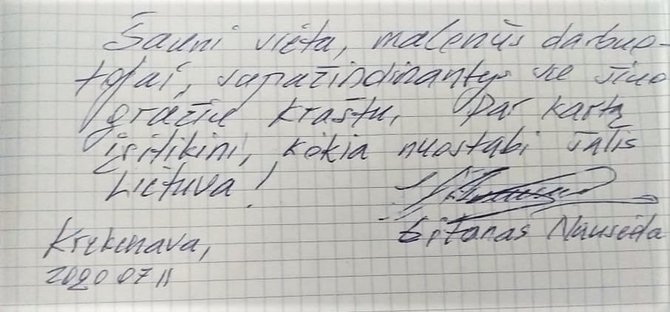 Šauni vieta, malonūs darbuo-
tojai, supažindinantys su šiuo
gražiu kraštu. Dar kartą
įsitikini, kokia nuostabi šalis
Lietuva!
Gitanas Nausėda
Krekenava,
2020 07 11